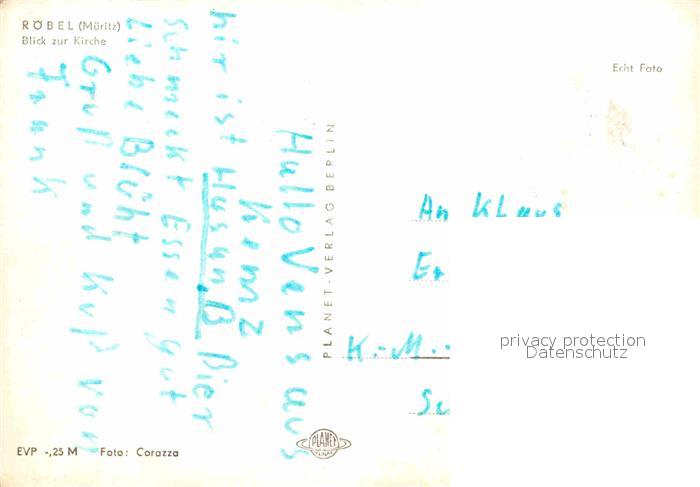 RÖBEL (Müritz)
Blick zur Kirche
Echt Foto
Hallo Vens aus
KamZ
hir ist Hasun.ß Bier
schmeckt Essen gut
Liebe Blüht
Gruß und Kuß von
Frank
PLANET-VERLAG BERLIN
An Klaus
K.-M.-
privacy protection
Datenschutz
PLANET
EVP -,25 M Foto: Corazza